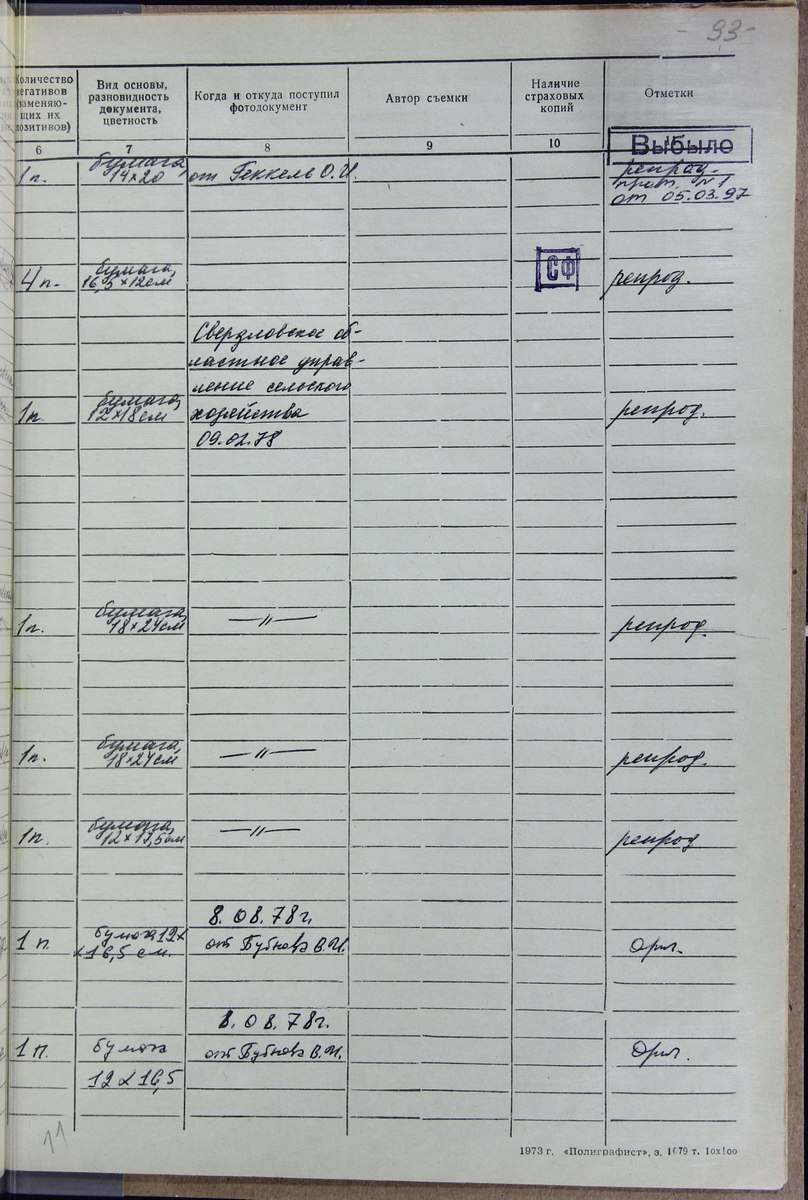 - 93-
Количество негативов (заменяющих их позитивов)
Вид основы, разновидность документа, цветность
Когда и откуда поступил фотодокумент
Автор съемки
Наличие страховых копий
Отметки
6 7 8 9 10
Выбыло
1 п. бумага, 14×20 от Геккель О.И. репрод.
прот. №1
от 05.03.97
4 п. бумага, 16,5×12см СФ репрод.
Свердловское об-
ластное управ-
ление сельского
1п. бумага, 12×18см хозяйства репрод.
09.02.78
1п. бумага, 18×24см —〃— репрод.
1п. бумага, 18×24см —〃— репрод.
1п. бумага, 12×17,5см —〃— репрод
8.08.78г.
1 п. бумага 12×
×16,5 см. от Бубнова В.И. Ориг.
8.08.78г.
1 п. бумага от Бубнова В.И. Ориг.
12×16,5
11
1973 г. «Полиграфист», з. 1079 т. 10х100